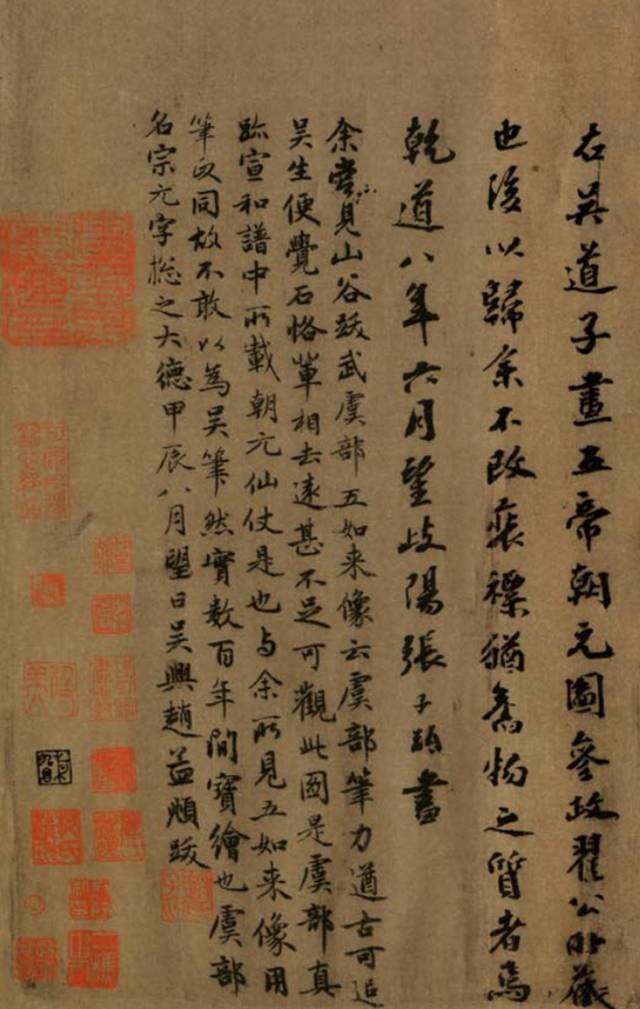 右吳道子畫五帝朝元圖參政翟公所藏
也後以歸余不改裝褾猶舊物之質者焉
乾道八年六月望歧陽張子
余嘗見山谷跋武虞部五如来像云虞部筆力遒古可追
吳生便覺石恪輩相去遠甚不足可觀此圖是虞部真
跡宣和譜中所載朝元仙仗是也与余所見五如来像用
筆政同故不敢以為吳筆然實數百年間寶繪也虞部
名宗元字総之大德甲辰八月望日吳興趙孟頫跋